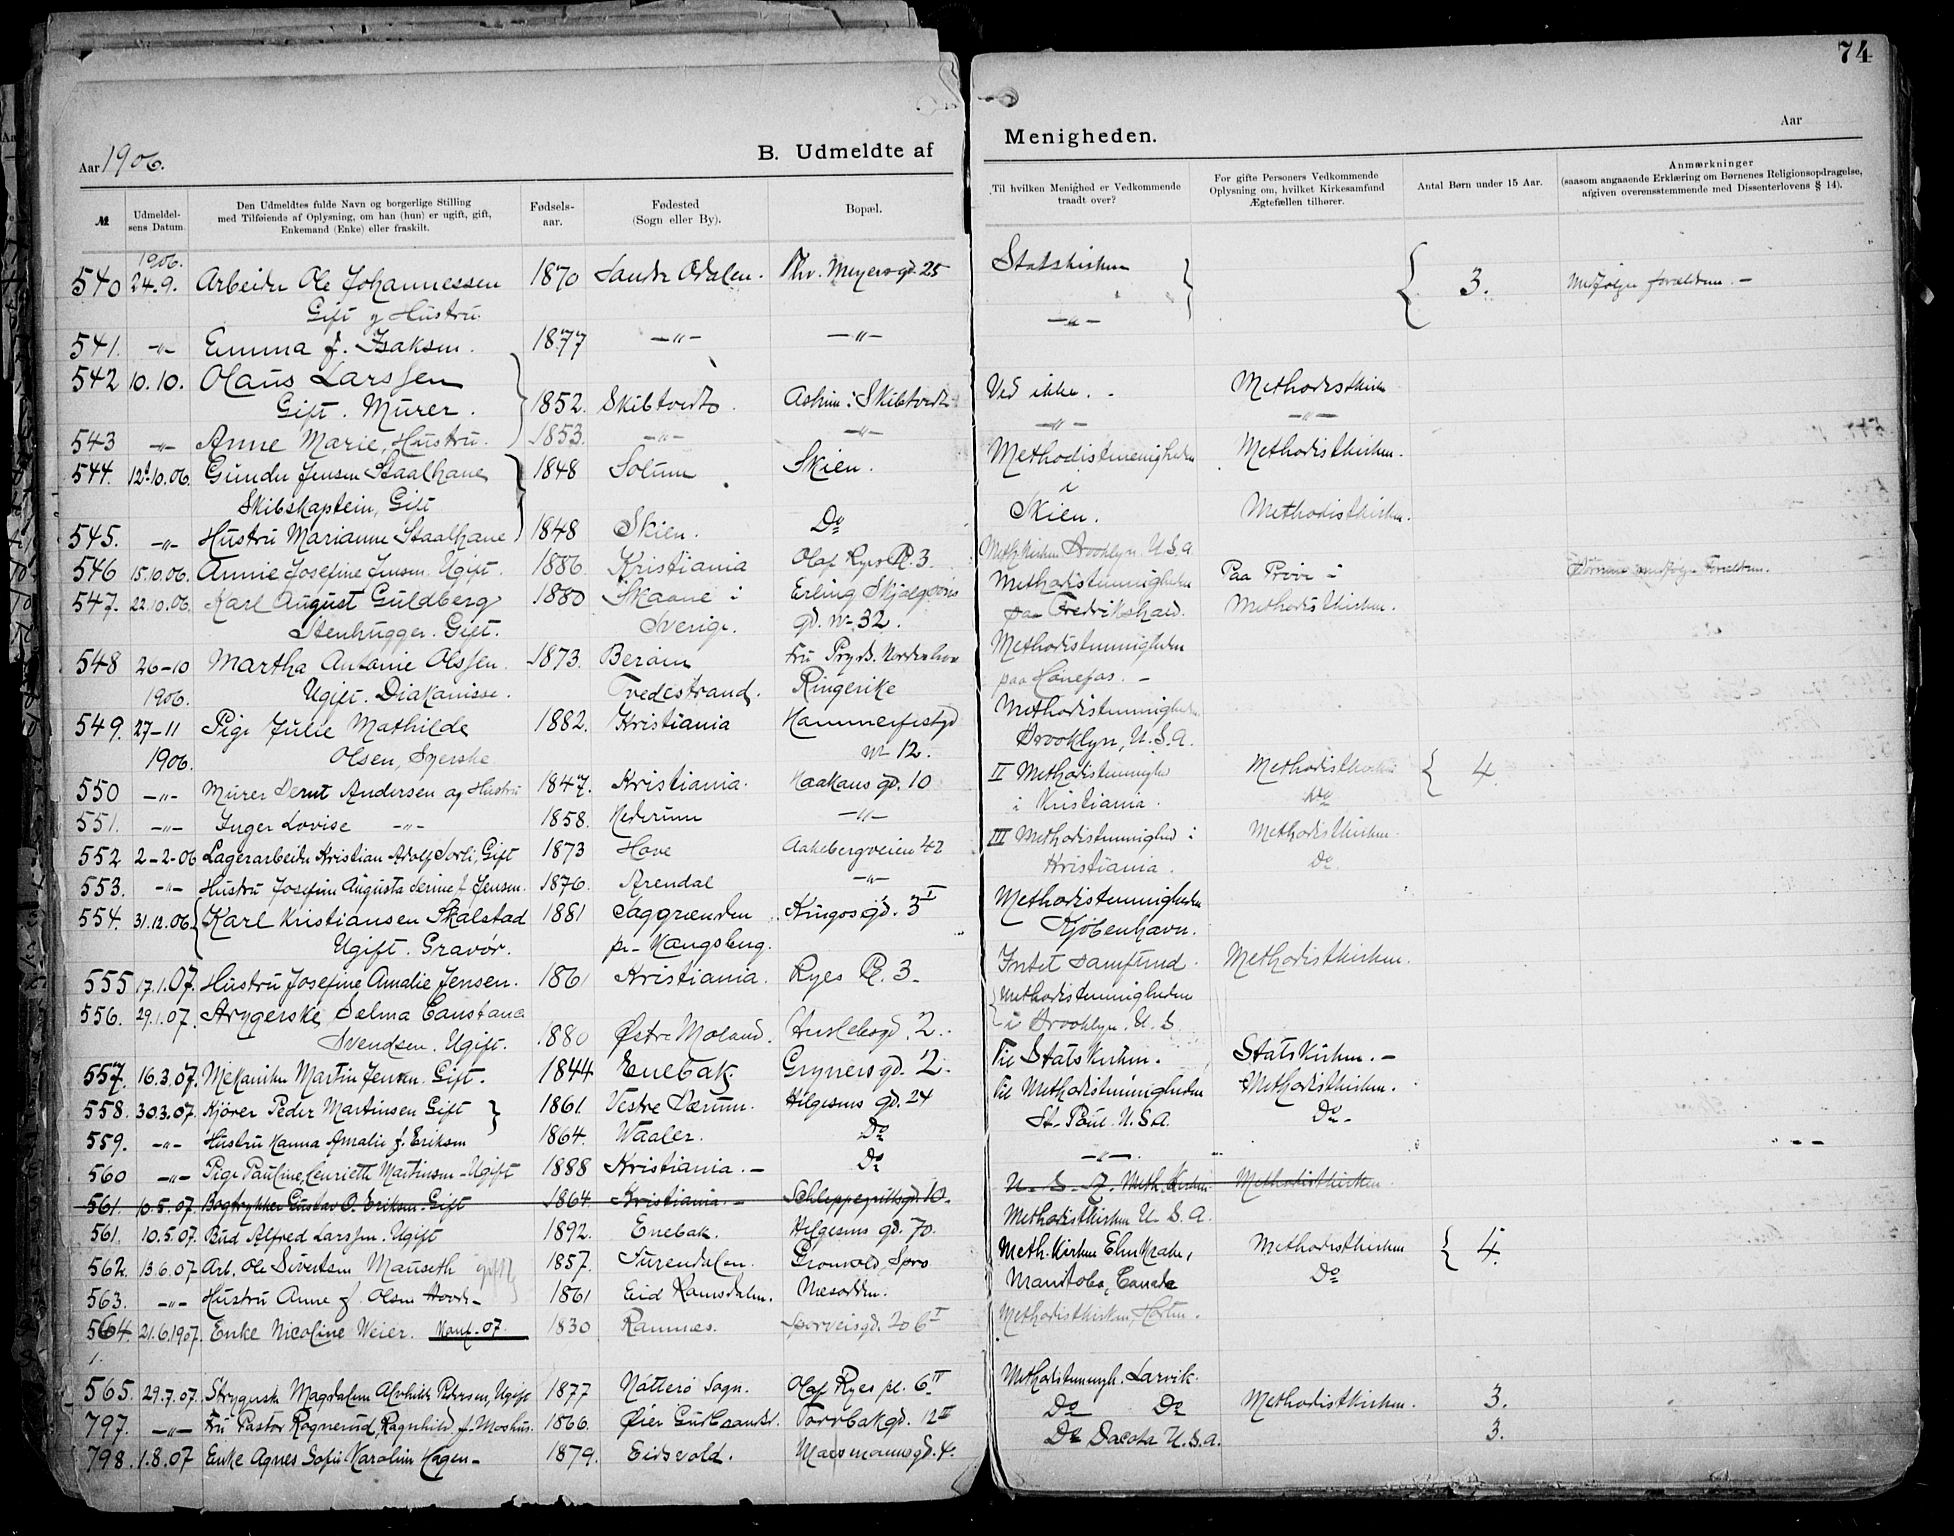 74
Aar 1906.
B. Udmeldte af Menigheden.
Aar
№
Udmeldelsens Datum.
Den Udmeldtes fulde Navn og borgerlige Stilling
med Tilføiende af Oplysning, om han (hun) er ugift, gift,
Enkemand (Enke) eller fraskilt.
Fødsels-
aar.
Fødested
(Sogn eller By).
Bopæl.
Til hvilken Menighed er Vedkommende
traadt over?
For gifte Personers Vedkommende
Oplysning om, hvilket Kirkesamfund
Ægtefællen tilhører.
Antal Børn under 15 Aar.
Anmærkninger
(saasom angaaende Erklæring om Børnenes Religionsopdragelse,
afgiven overensstemmende med Dissenterlovens § 14).
1906.
540 24.9. Arbeider Ole Johannessen 1870 Søndre Odalen. Thv. Meyersgd. 25 Statskirken 3. Medfølger forældrene. —
Gift og Hustru. —"—
541. —"— Emma f. Isaksen. 1877 —"— —"—
542 10.10. Olaus Larssen Ved ikke. Methodistkirken
Gift. Murer. 1852. Skibtvedt. Askim i Skibtvedt —"—
543 —"— Anne Marie, Hustru. 1853. —"— —"— —"—
544. 12.10.06. Gunder Jensen Staalhane 1848 Solum Skien. Methodistmenigheden Methodistkirken.
Skibskaptein, Gift i
545. —"— Hustru Marianne Staalhane 1848 Skien. Do Skien. Methodistkirken.
546 15.10.06. Annie Josefine Jensen. Ugift. 1886 Kristiania Olaf Ryes Pl. 3. Meth. Kirken Brooklyn. U.S.A.
547. 22.10.06. Karl August Guldberg 1880 Skaane i Erling Skjalgsøns Methodistmenigheden Paa Prøve i Børnene medfølger Forældrene.
Stenhugger. Gift. Sverige. gd. № 32. paa Fredrikshald. Methodistkirken.
548 26-10 Martha Antonie Olssen. 1873. Fru Prydz. Norderhov Methodistmenigheden
1906. Ugift. Diakonisse. Tvedestrand. Ringerike paa Hønefos. —
549. 27-11 Pige Julie Mathilde 1882. Kristiania Hammerfestgd Methodistmenigheden
1906. Olsen, Syerske № 12. Brooklyn, U.S.A.
550 —"— Murer Bernt Andersen og Hustru 1847. Kristiania. Haakons gd. 10 II Methodistmenighed Methodistkirken 4.
i Kristiania. Do
551. —"— Inger Lovise —"— 1858. —"—
552 2-2-06 Lagerarbeider Kristian Adolf Sorli, Gift 1873 Hove Aakebergveien 42 III Methodistmenighed i Methodistkirken.
Kristiania. Do.
553. —"— Hustru Josefine Augusta f. Jensen. 1876. Arendal —"—
554. 31.12.06. Karl Kristiansen Skalstad 1881 Saggrænden Kingosgd. 3 I Methodistmenigheden
Ugift. Gravør. pr. Kongsberg. Kjøbenhavn.
555 17.1.07. Hustru Josefine Amalie Jensen. 1861 Kristiania. Ryes Pl. 3. Intet Samfund. Methodistkirken.
556. 29.1.07. Strygerske Selma Constance Methodistmenigheden
Svendsen. Ugift. 1880 Østre Moland. 2. i Brooklyn. U.S.
557. 16.3.07. Mekaniker Martin Jensen. Gift. 1844 Enebak. Grynersgd. 2. Til Statskirken. Statskirken. —
558. 30.3.07. Kjører Peder Martinsen Gift 1861. Vestre Bærum. Helgesens gd. 24 Til Methodistmenigheden Methodistkirken.
St. Paul. U.S.A. Do.
559. —"— Hustru Hanna Amalie f. Eriksen 1864. Waaler. Do
560 —"— Pige Pauline Henriette Martinsen. Ugift 1888 Kristiania. — Do —"—
561. 10.5.07. Bogtrykker Gustav O. Eriksen. Gift 1864. Kristiania. — Schleppegrellsgd. 10. U.S.A. Meth. Kirken Methodistkirken.
561. 10.5.07. Bud Alfred Larssen. Ugift 1892. Enebak. Helgesens gd. 70. Methodistkirken U.S.A.
562. 13.6.07. Arb. Ole Sivertsen Mauseth gift 1857. Surendalen. Meth. Kirken Methodistkirken 4.
563. —"— Hustru Anne f. Olsen 1861 Eid Romsdalen. Næsodden. Manitoba, Canada Do
564. 21.6.1907. Enke Nicoline Weier. Konf. 07. 1830 Ramnes. Sporveisgd. 20 6 I Methodistkirken, Horten.
1.
565. 29.7.07. Strygerske Magdalene Alvhilde Pedersen, Ugift 1877 Nøtterø Sogn. Olaf Ryes pl. 6 II Methodistmengh. Larvik.
797. —"— Fru Pastor Rognerud, Ragnhild f. Moshus. 1866. Øier Gudbrandsd. Torvbakgd. 12 III Do Do Methodistkirken. 3.
798. 1.8.07 Enke Agnes Sofie Karoline Hagen — 1879. Eidsvold. Do Dacota U.S.A. 3.